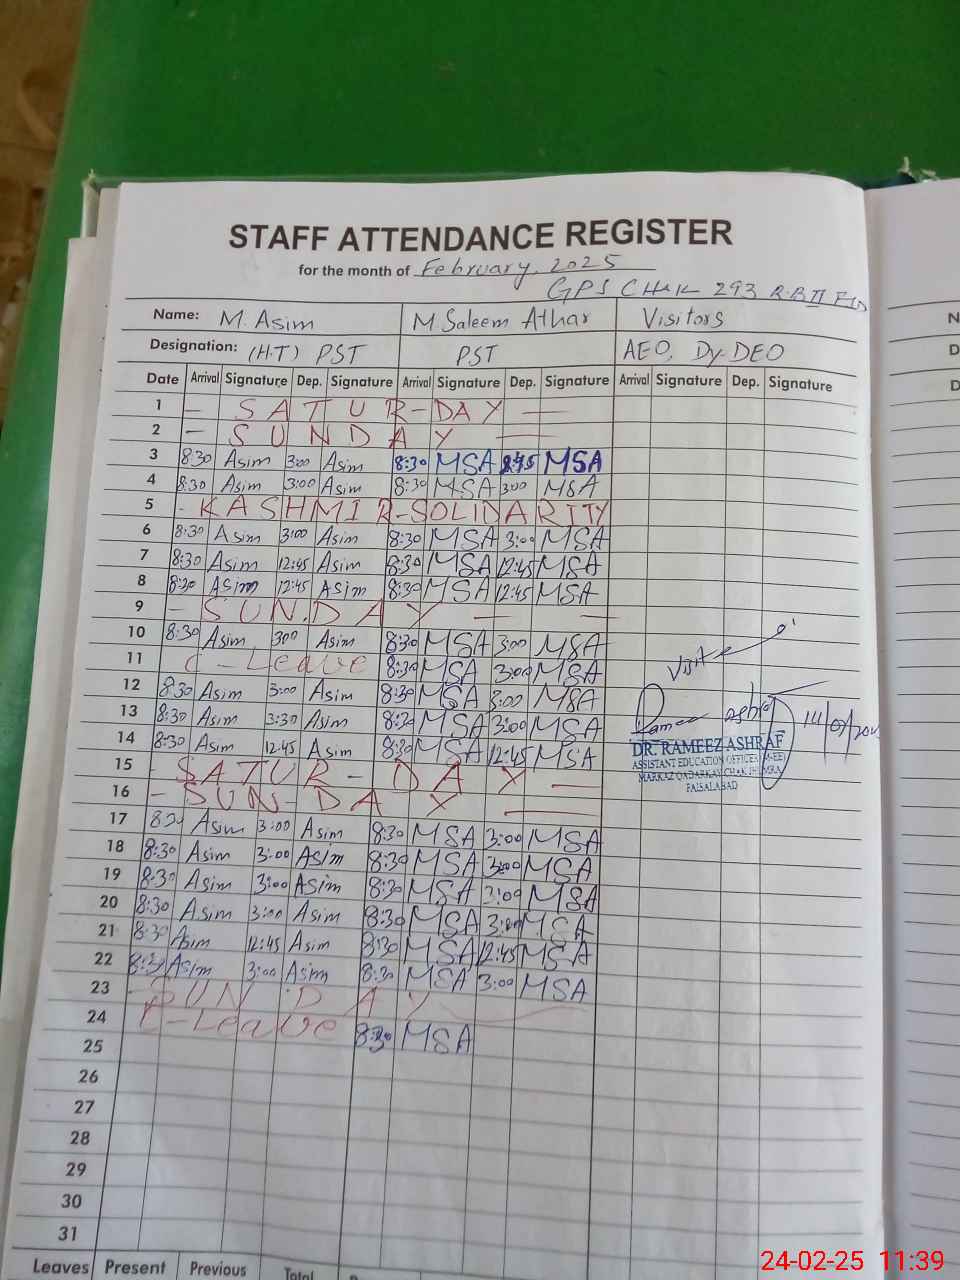 STAFF ATTENDANCE REGISTER
for the month of February, 2025
GPS CHAK 293 R.B II FSD
Name: M. Asim M Saleem Athar Visitors
Designation: (H.T) PST PST AEO, Dy-DEO
Date Arrival Signature Dep. Signature Arrival Signature Dep. Signature Arrival Signature Dep. Signature
1 - SATUR-DAY -
2 - SUNDAY -
3 8:30 Asim 3:00 Asim 8:30 MSA MSA
4 8:30 Asim 3:00 Asim 8:30 MSA 3:00 MSA
5 - KASHMIR-SOLIDARITY
6 8:30 Asim 3:00 Asim 8:30 MSA 3:00 MSA
7 8:30 Asim 12:45 Asim 8:30 MSA 12:45 MSA
8 8:30 Asim 12:45 Asim 8:30 MSA 12:45 MSA
9 - SUN.DAY - -
10 8:30 Asim 300 Asim 8:30 MSA 3:00 MSA
11 C-Leave 8:30 MSA 3:00 MSA
Visit
12 8:30 Asim 3:00 Asim 8:30 MSA 3:00 MSA
13 8:30 Asim 3:30 Asim 8:30 MSA 3:00 MSA
14 8:30 Asim 12:45 Asim 8:30 MSA 12:45 MSA
DR. RAMEEZ ASHRAF
ASSISTANT EDUCATION OFFICER (M-EE)
MARKAZ CHAK JHUMRA
FAISALABAD
15 - SATUR-DAY -
16 - SUN-DAY -
17 Asim 3:00 Asim 8:30 MSA 3:00 MSA
18 8:30 Asim 3:00 Asim 8:30 MSA 3:00 MSA
19 8:30 Asim 3:00 Asim 8:30 MSA 3:00 MSA
20 8:30 Asim 3:00 Asim 8:30 MSA 3:00 MSA
21 8:30 Asim 12:45 Asim 8:30 MSA 12:45 MSA
22 8:30 Asim 3:00 Asim 8:30 MSA 3:00 MSA
23 - SUNDAY
24 C-Leave 8:30 MSA
25
26
27
28
29
30
31
Leaves Present Previous Total
24-02-25 11:39